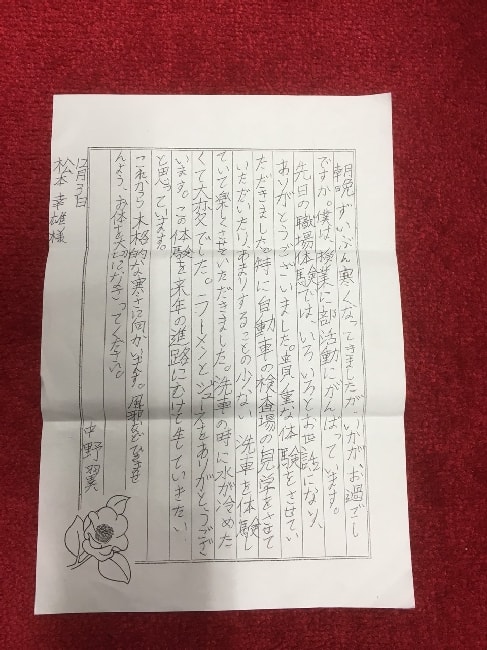 朝晩ずいぶん寒くなってきましたが、いかがお過ごし
ですか。僕は、授業に部活動にがんばっています。
先日の職場体験では、いろいろとお世話になり、
ありがとうございました。貴重な体験をさせてい
ただきました。特に自動車の検査場の見学をさせて
いただいたり、あまりすることの少ない洗車を体験し
ていて楽しさせていただきました。洗車の時に水が冷めた
くて大変でした。ラーメンとジュースをありがとうござ
います。この体験を来年の進路にむけて生していきたい
と思っています。
これから本格的な寒さに向かいます。風邪などひきませ
んよう、お体を大切になさってください。
12月3日
中野
松本幸雄様